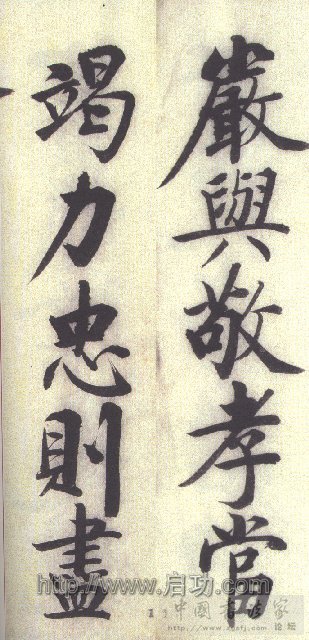 嚴與敬孝當
竭力忠則盡
http://www.启功.com
中國书法家论坛